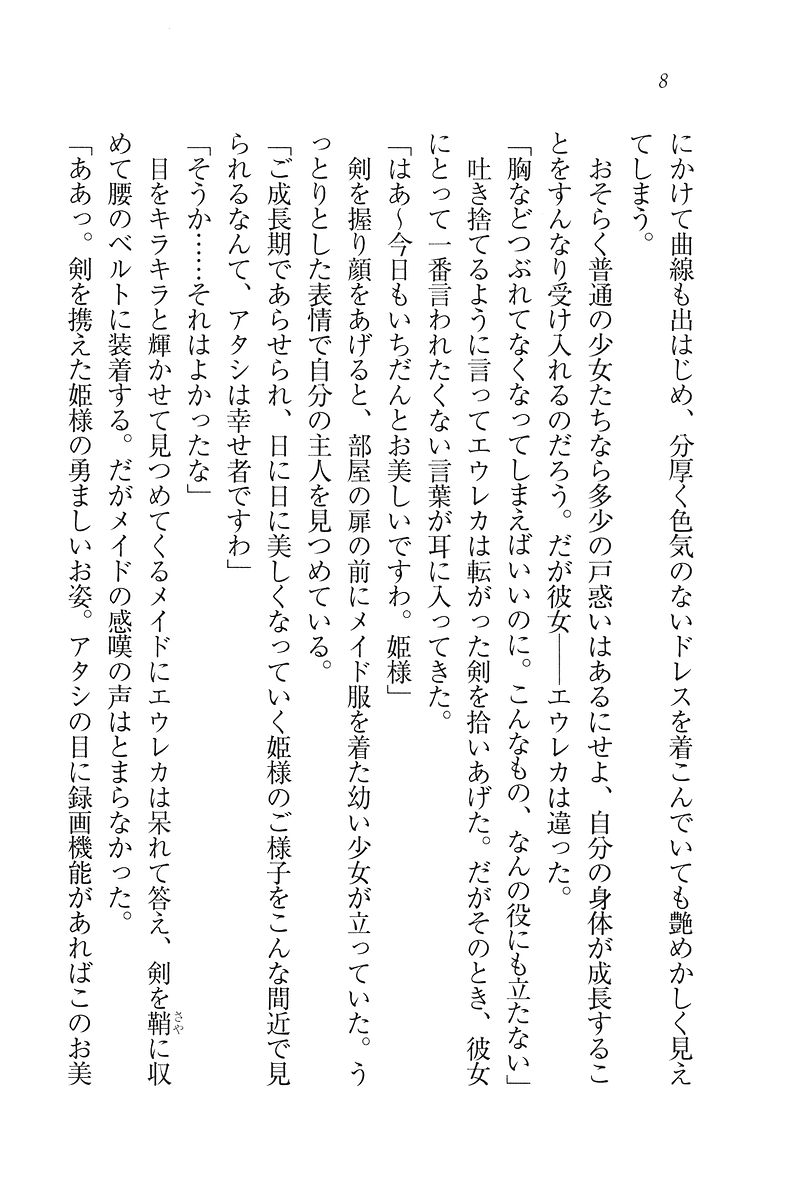 8
にかけて曲線も出はじめ、分厚く色気のないドレスを着こんでいても艶めかしく見え
てしまう。
おそらく普通の少女たちなら多少の戸惑いはあるにせよ、自分の身体が成長するこ
とをすんなり受け入れるのだろう。だが彼女――エウレカは違った。
「胸などつぶれてなくなってしまえばいいのに。こんなもの、なんの役にも立たない」
吐き捨てるように言ってエウレカは転がった剣を拾いあげた。だがそのとき、彼女
にとって一番言われたくない言葉が耳に入ってきた。
「はあ〜今日もいちだんとお美しいですわ。姫様」
剣を握り顔をあげると、部屋の扉の前にメイド服を着た幼い少女が立っていた。う
っとりとした表情で自分の主人を見つめている。
「ご成長期であらせられ、日に日に美しくなっていく姫様のご様子をこんな間近で見
られるなんて、アタシは幸せ者ですわ」
「そうか……それはよかったな」
目をキラキラと輝かせて見つめてくるメイドにエウレカは呆れて答え、剣を鞘さやに収
めて腰のベルトに装着する。だがメイドの感嘆の声はとまらなかった。
「ああっ。剣を携えた姫様の勇ましいお姿。アタシの目に録画機能があればこのお美